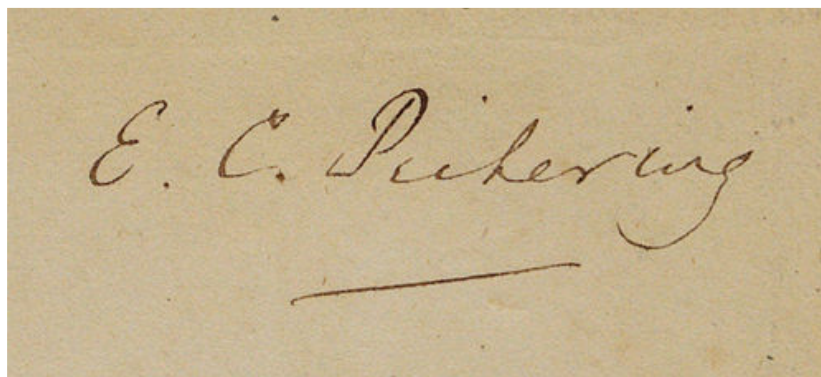 E. C. Pickering